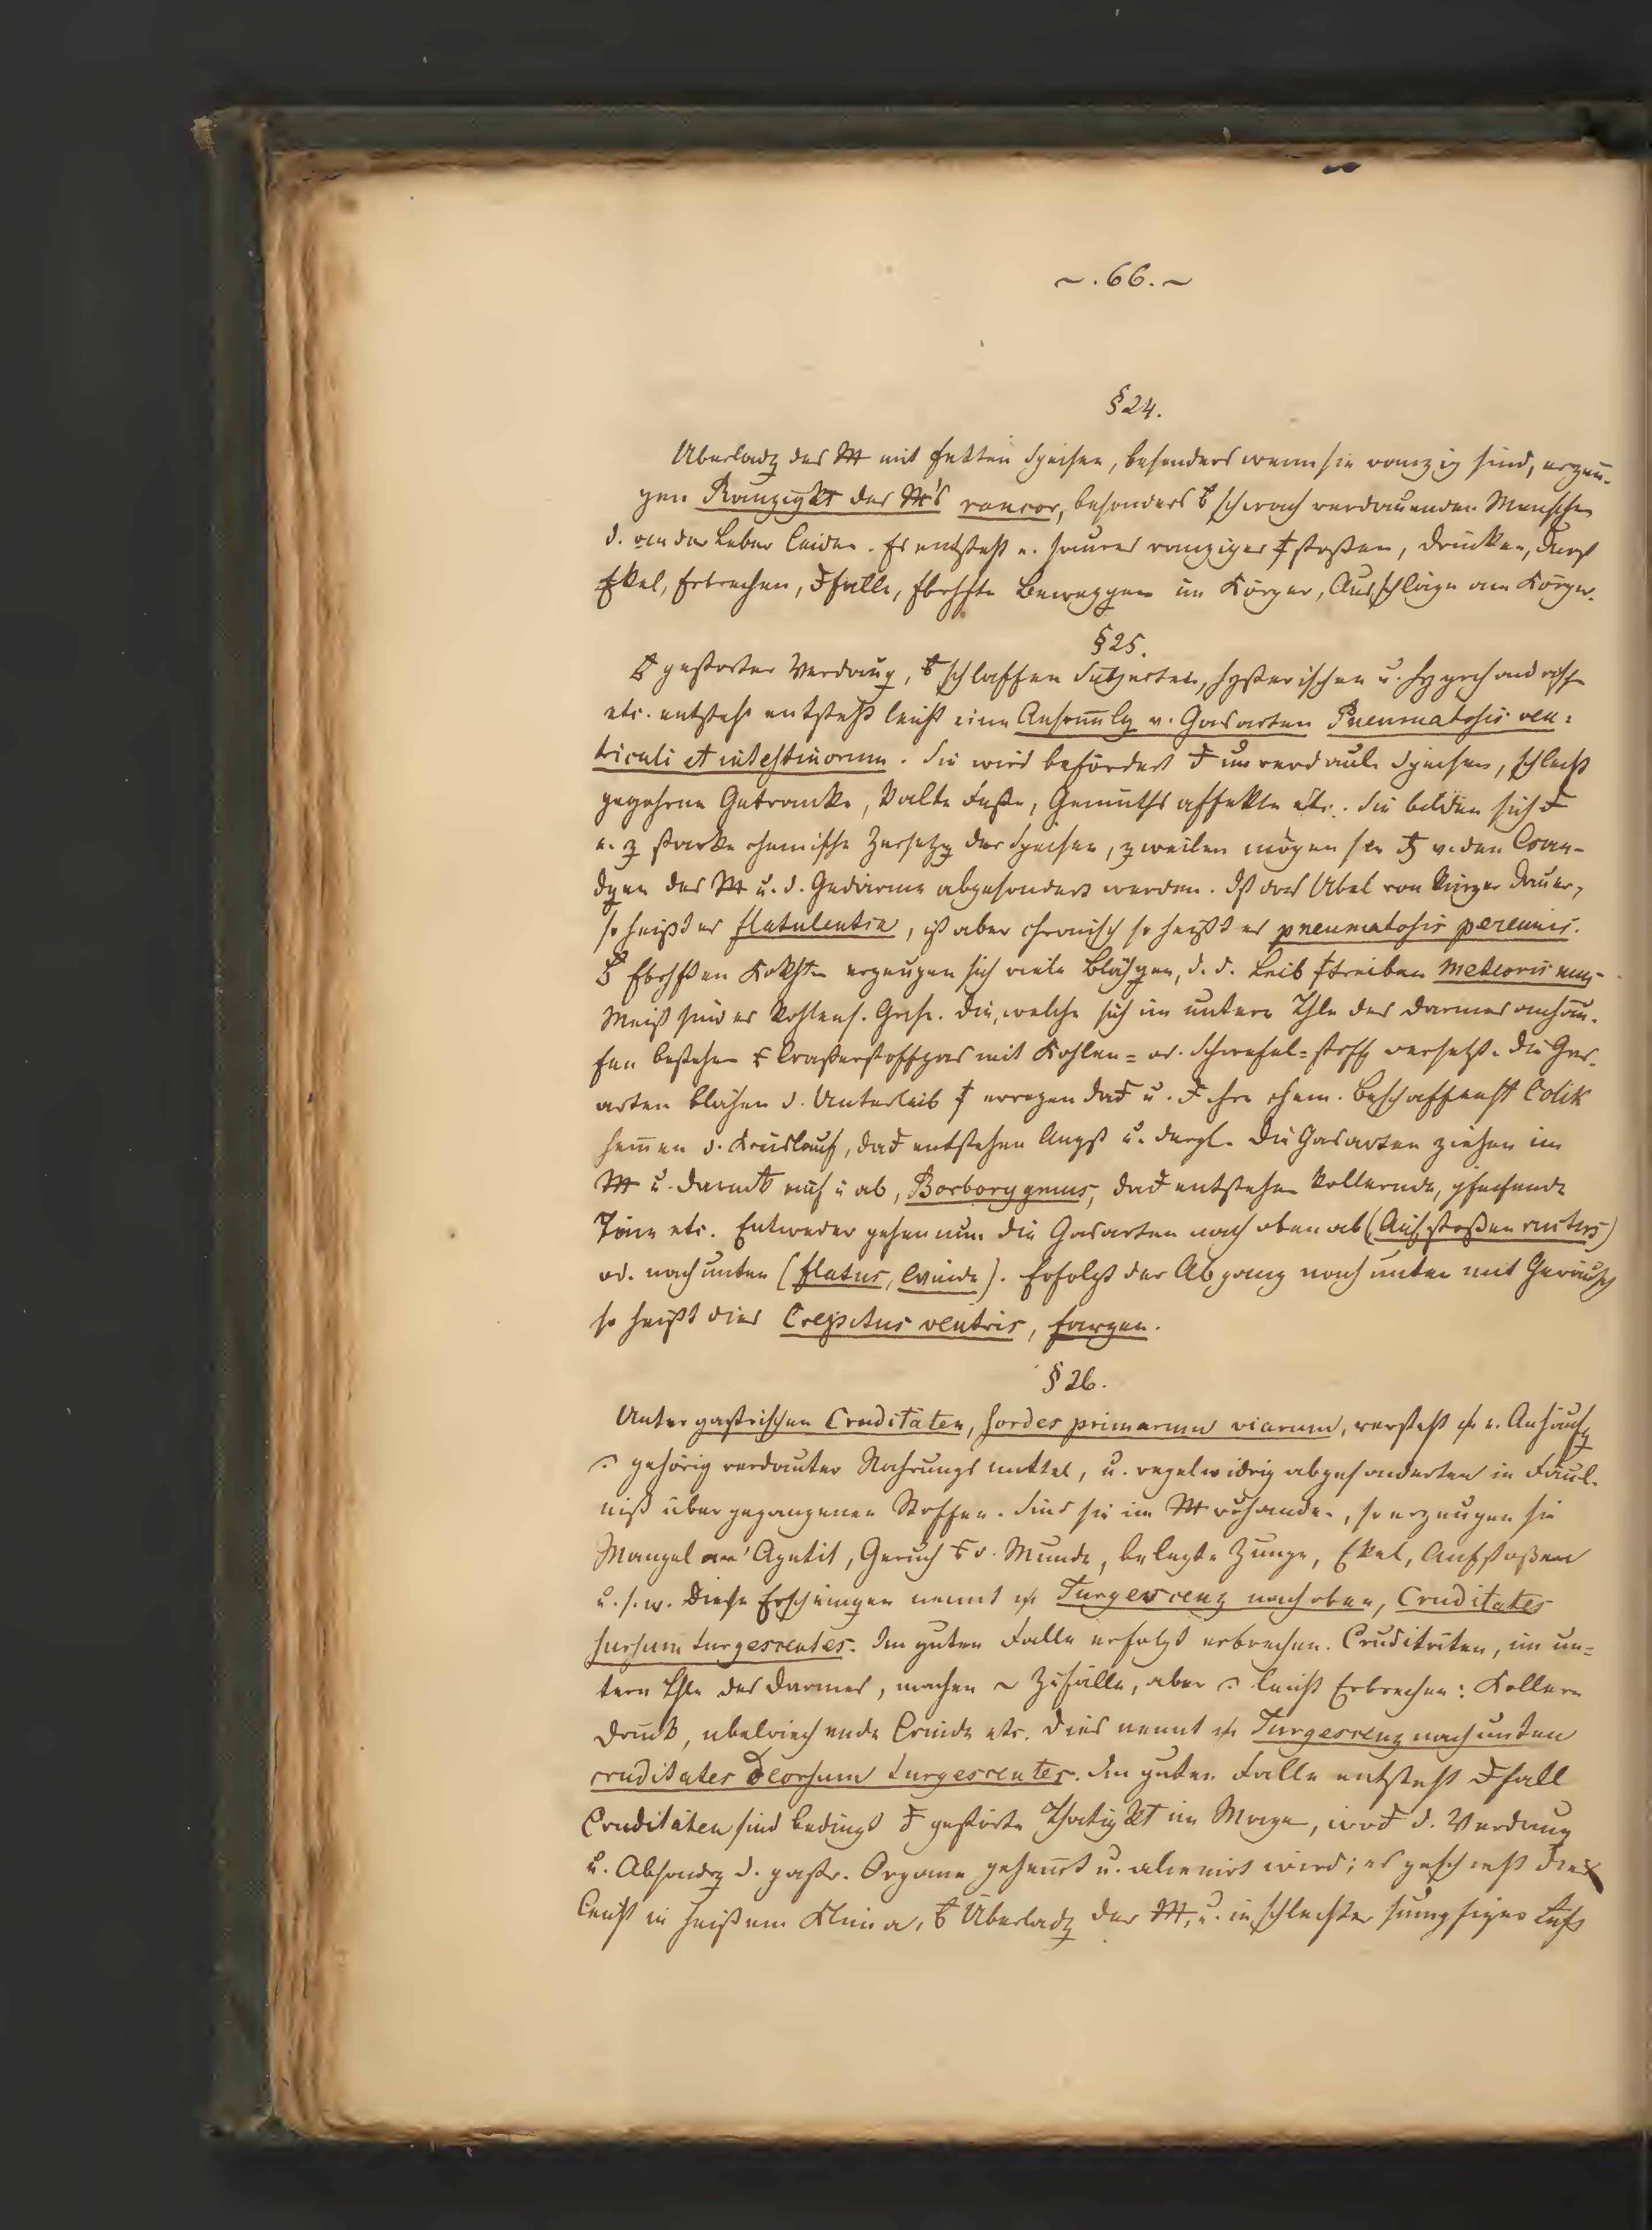 ~ . 66 . ~
§ 24.
Uberladg des M mit fetten Speisen, besonders wenn sie ranzig sind, erzeu-
gen Ranzigkt des M's rancor, besonders b schwach verdauenden Menschen
d. an der Leber leiden. Es entsteht e. saures ranziges stoßen, Drücken, Durst
Ekel, Erbrechen, falle, Beweggen im Körper, Ausschläge am Körper.
§ 25.
gestörter Verdaug, b schlaffen Subjecten, hysterischen u. hypochondrisch
etc. entsteht entsteht leicht eine Ansamlg v. Gasarten Pneumatosis ven-
triculi et intestinorum. Sie wird befördert unverdaul. Speisen, schlecht
gegohrne Getränke, kalte Füße, Gemüths affekte etc. Sie bilden sich
e. z starke chemische Zersetzg der Speisen, zweilen mögen sie v. den Wan-
dgen des M u. d. Gedärme abgesondert werden. Ist das Übel von kurzer Dauer,
so heißt es flatulentia, ist aber chronisch so heißt es pneumatosis perennis.
erzeugen sich viele Blähgen, d. d. Leib treiben Meteorismus
Meist sind es kohlens. Gase. Die, welche sich im untern Thle des Darmes anhäu-
fen bestehen Waßerstoffgas mit Kohlen- od. Schwefel-stoff versetzt. Die Gas-
arten blähen d. Unterleib erregen dad u. ihre chem. Beschaffenht Colik
hemen d. Kreislauf, dad entstehen Angst u. dergl. Die Gasarten ziehen im
M u. auf u ab, Borborygmus, dad entstehen kollernde, pfeifende
Töne etc. Entweder gehen nun die Gasarten nach oben ab (Aufstoßen ructus)
od. nach unten (flatus, Winde). Erfolgt der Abgang nach unten mit Geräusch
so heißt dies Crepitus ventris, farzen.
§ 26.
Unter gastrischen Cruditäten, sordes primarum viarum, versteht e. Anhäufg
gehörig verdauter Nahrungsmittel, u. regelwidrig abgesonderten in Fäul-
niß übergegangenen Stoffen. Sind sie im M vorhanden, so erzeugen sie
Mangel an Apetit, Geruch d. Munde, belegte Zunge, Ekel, Aufstoßen
u. s. w. Diese Erscheingen nennt Turgescenz nach oben, Cruditates
sursum turgescentes. Im guten Falle erfolgt erbrechen. Cruditäten, im un-
tern Thle des Darmes, machen ~ Zufälle, aber leicht Erbrechen: Kollern
Druck, ubelriechende Winde etc. Dies nennt Turgescenz nach unten
cruditates deorsum turgescentes. Im guten Falle entsteht fall
Cruditäten sind bedingt gestörte Thätigkt im Magen, d. Verdaug
u. Absondrg d. gastr. Organe gehemt u. alienirt wird; es geschieht dies
leicht in heißem Klima, b Überladg des M, u. in schlechter sumpfiger Luft